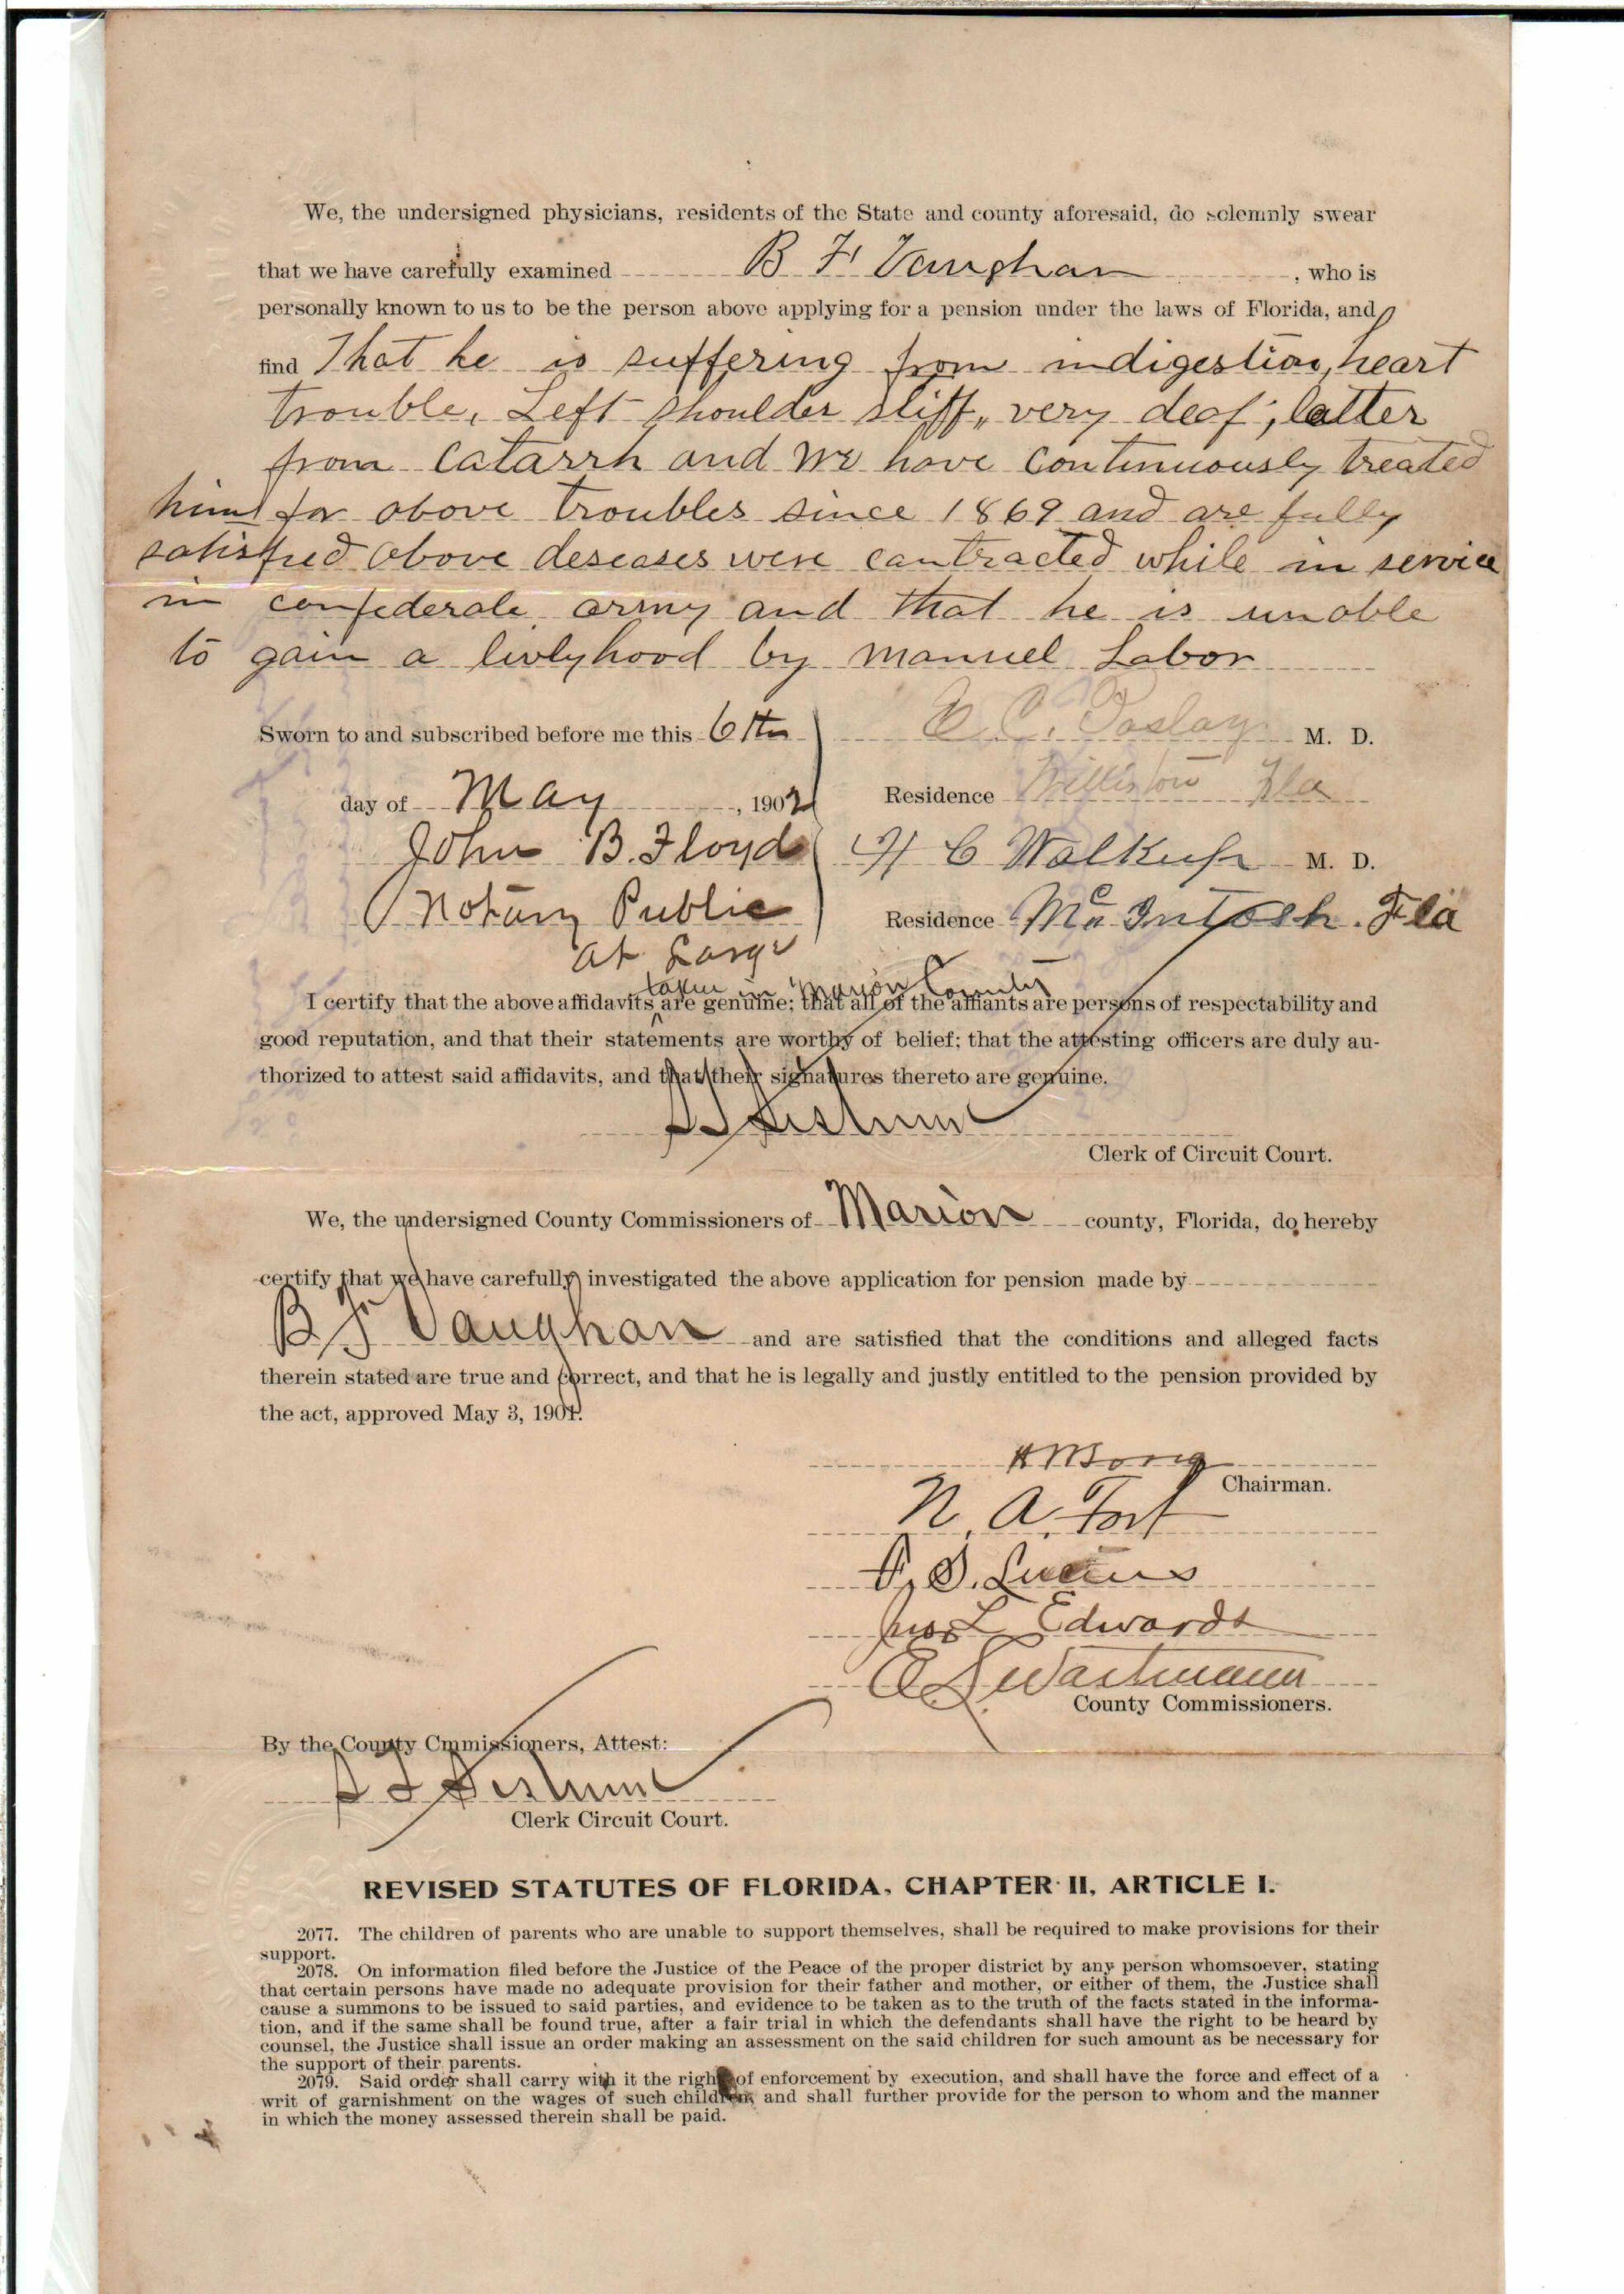 We, the undersigned physicians, residents of the State and county aforesaid, do solemnly swear
that we have carefully examined B F Vaughan, who is
personally known to us to be the person above applying for a pension under the laws of Florida, and
find That he is suffering from indigestion, heart
trouble, Left shoulder stiff, very deaf; latter
from Catarrh and we have continuously treated
him for above troubles since 1869 and are fully
satisfied above deseases were contracted while in service
in confederate army and that he is unable
to gain a livlyhood by manuel Labor
Sworn to and subscribed before me this 6th
E. C. M. D.
day of May, 1902
Residence Williston Fla
John B. Floyd
H C Walkup M. D.
Notary Public
Residence McIntosh. Fla
at Large
taken in Marion County
I certify that the above affidavits are genuine; that all of the affiants are persons of respectability and
good reputation, and that their statements are worthy of belief; that the attesting officers are duly au-
thorized to attest said affidavits, and that their signatures thereto are genuine.
Clerk of Circuit Court.
We, the undersigned County Commissioners of Marion county, Florida, do hereby
certify that we have carefully investigated the above application for pension made by
B F Vaughan and are satisfied that the conditions and alleged facts
therein stated are true and correct, and that he is legally and justly entitled to the pension provided by
the act, approved May 3, 1901.
Chairman.
N. A. Fort
Jno L Edwards
County Commissioners.
By the County Cmmissioners, Attest:
Clerk Circuit Court.
REVISED STATUTES OF FLORIDA, CHAPTER II, ARTICLE I.
2077. The children of parents who are unable to support themselves, shall be required to make provisions for their
support.
2078. On information filed before the Justice of the Peace of the proper district by any person whomsoever, stating
that certain persons have made no adequate provision for their father and mother, or either of them, the Justice shall
cause a summons to be issued to said parties, and evidence to be taken as to the truth of the facts stated in the informa-
tion, and if the same shall be found true, after a fair trial in which the defendants shall have the right to be heard by
counsel, the Justice shall issue an order making an assessment on the said children for such amount as be necessary for
the support of their parents.
2079. Said order shall carry with it the right of enforcement by execution, and shall have the force and effect of a
writ of garnishment on the wages of such children and shall further provide for the person to whom and the manner
in which the money assessed therein shall be paid.